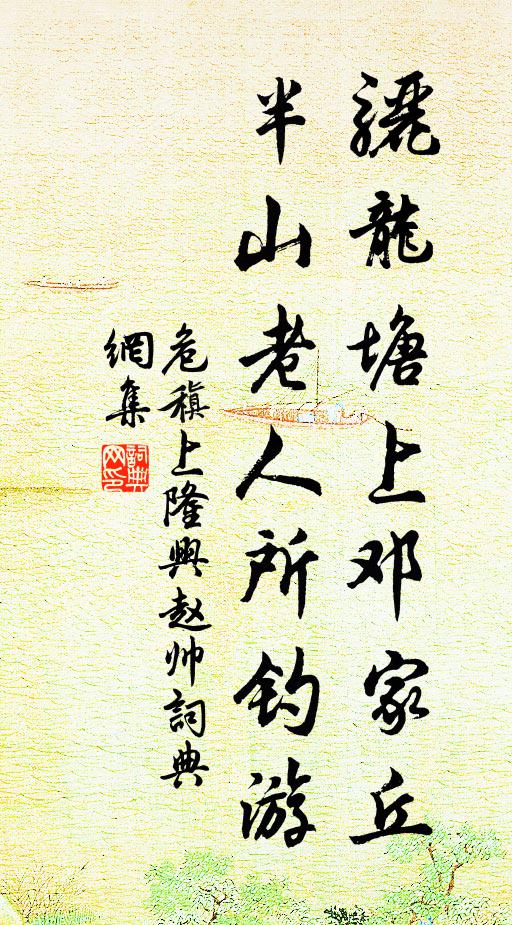 骊龍塘上邓家丘
半山老人所钓游
危稹上隆興赵帅詞典
網集
詞典网印